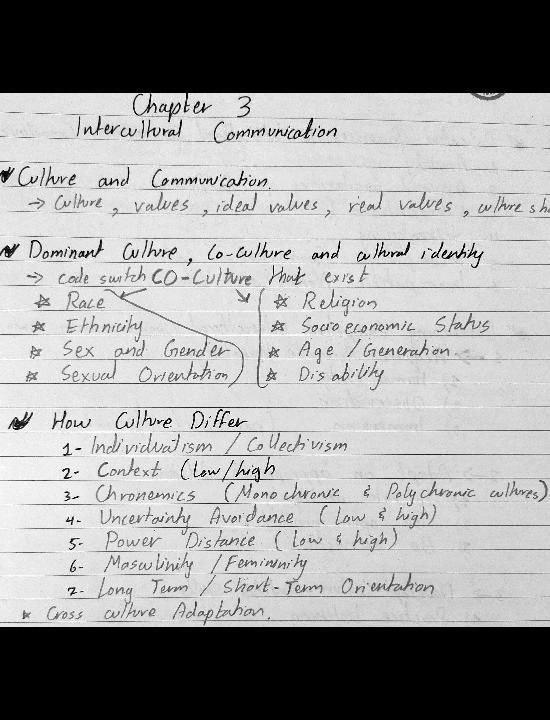 Chapter 3
Intercultural Communication
Culture and Communication.
→ Culture, values, ideal values, real values, culture
Dominant Culture, Co-culture and cultural identity
→ code switch CO-Culture that exist
☆ Race
☆ Ethnicity
☆ Sex and Gender
☆ Sexual Orientation
☆ Religion
☆ Socioeconomic Status
☆ Age / Generation
☆ Disability
How Culture Differ
1- Individualism / Collectivism
2- Context (low/high
3- Chronemics (Monochronic & Polychronic cultures)
4- Uncertainty Avoidance (low & high)
5- Power Distance (low & high)
6- Masculinity / Femininity
7- Long Term / Short-Term Orientation
* Cross culture Adaptation.